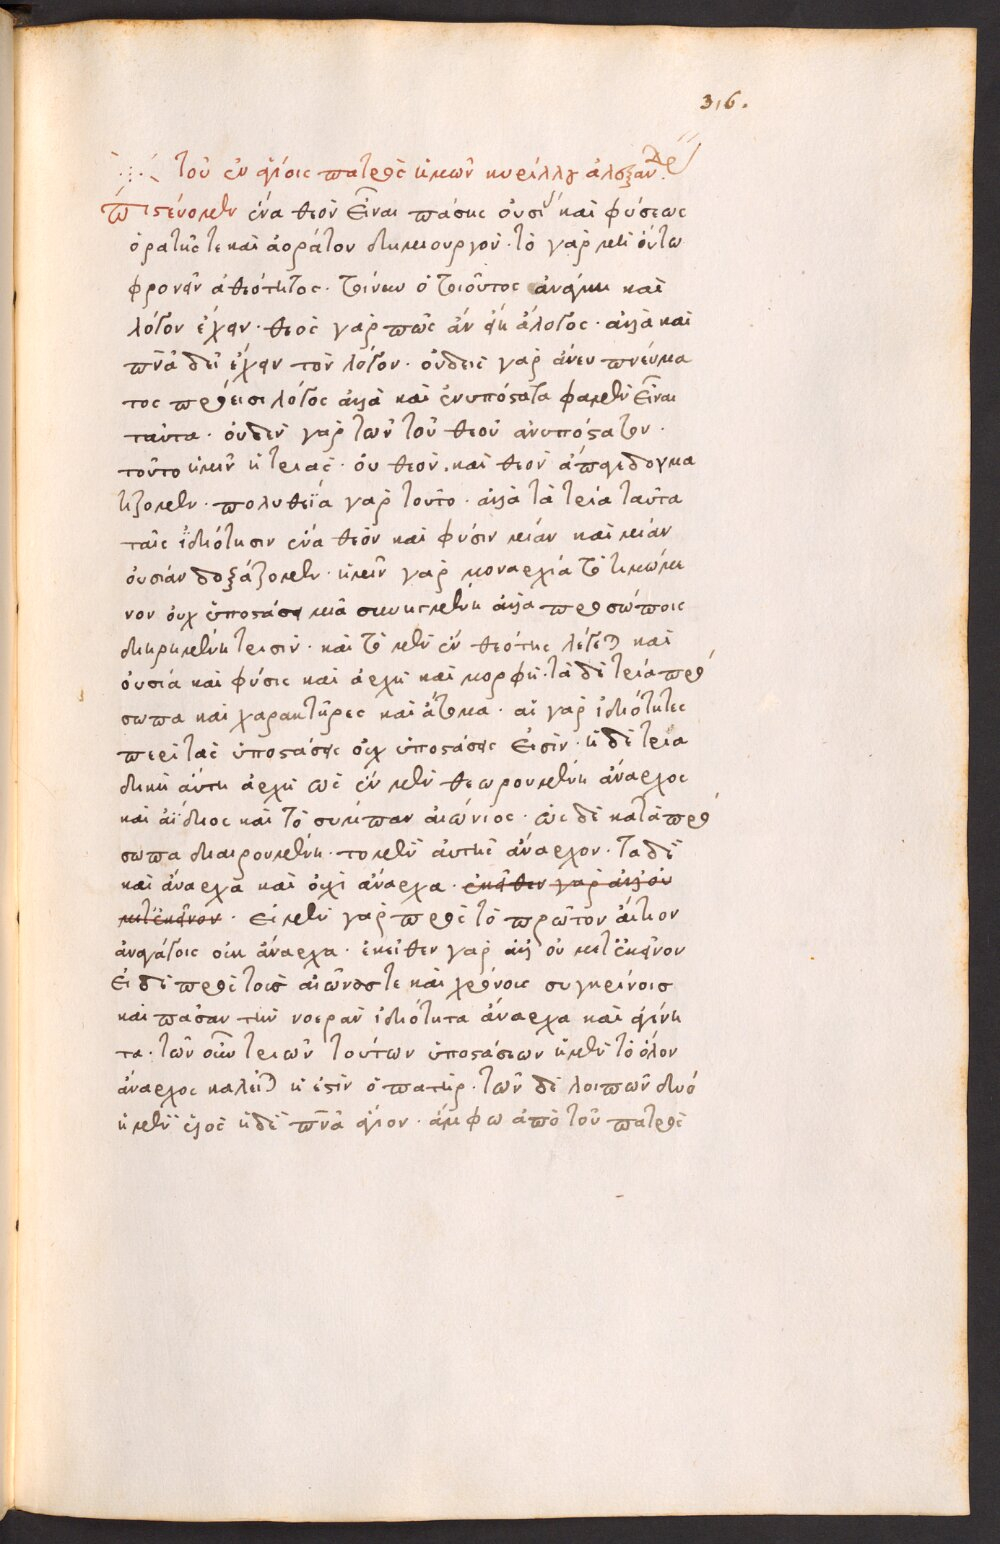 316.
τοῦ ἐν ἁγίοις πατρὸς ἡμῶν κυρίλλου ἀλεξανδρ
πιστεύομεν ἕνα θεὸν εἶναι πάσης οὐσί καὶ φύσεως
ὁρατῆς τε καὶ ἀοράτου δημιουργόν· τὸ γὰρ μὴ οὕτω
φρονεῖν ἀθεότητος· τοίνυν ὁ τοιοῦτος ἀνάγκη καὶ
λόγον ἔχειν· θεὸς γὰρ πῶς ἂν εἴη ἄλογος· ἀλλὰ καὶ
πνᾶ δεῖ ἔχειν τὸν λόγον· οὐδεὶς γὰρ ἄνευ πνεύμα
τος πρόεισι λόγος ἀλλὰ καὶ ἐνυπόστατα φαμὲν εἶναι
ταῦτα· οὐδὲν γὰρ τῶν τοῦ θεοῦ ἀνυπόστατον·
τοῦτο ἡμῖν ἡ τριάς· οὐ θεὸν καὶ θεὸν δογμα
τίζομεν· πολυθεΐα γὰρ τοῦτο· ἀλλὰ τὰ τρία ταῦτα
ταῖς ἰδιότησιν ἕνα θεὸν καὶ φύσιν μίαν καὶ μίαν
οὐσίαν δοξάζομεν· ἡμῖν γὰρ μοναρχία τὸ τιμώμε
νον οὐχ ὑποστάσει μιᾶ ἀλλὰ προσώποις
διηρημένη τρισίν· καὶ τὸ μὲν ἓν θεότης λέγεται καὶ
οὐσία καὶ φύσις καὶ ἀρχὴ καὶ μορφή· τὰ δὲ τρία πρό
σωπα καὶ χαρακτῆρες καὶ ἄτομα· αἱ γὰρ ἰδιότητες
περὶ τὰς ὑποστάσεις οὐχ ὑποστάσεις εἰσίν· ἡ δὲ τρια
δικὴ αὕτη ἀρχὴ ὡς ἓν μὲν θεωρουμένη ἄναρχος
καὶ ἀΐδιος καὶ τὸ σύμπαν αἰώνιος· ὡς δὲ κατὰ πρό
σωπα διαιρουμένη· τὸ μὲν αὐτῆς ἄναρχον· τὰ δὲ
καὶ ἄναρχα καὶ οὐχὶ ἄναρχα· ἐκεῖθεν γὰρ ἀλλ οὐ
μετ ἐκεῖνον· εἰ μὲν γὰρ πρὸς τὸ πρῶτον αἴτιον
ἀναγάγοις οὐκ ἄναρχα· ἐκεῖθεν γὰρ ἀλλ οὐ μετ ἐκεῖνον
εἰ δὲ πρὸς τοὺς αἰῶνάς τε καὶ χρόνους συγκρίνοις
καὶ πᾶσαν τὴν νοερὰν ἰδιότητα ἄναρχα καὶ ἀγένη
τα· τῶν οὖν τριῶν τούτων ὑποστάσεων ἡ μὲν τὸ ὅλον
ἄναρχος καλεῖται ἥ ἐστιν ὁ πατήρ· τῶν δὲ λοιπῶν δυό
ἡ μὲν ὑιὸς ἡ δὲ πνᾶ ἅγιον· ἄμφω ἀπὸ τοῦ πατρὸς